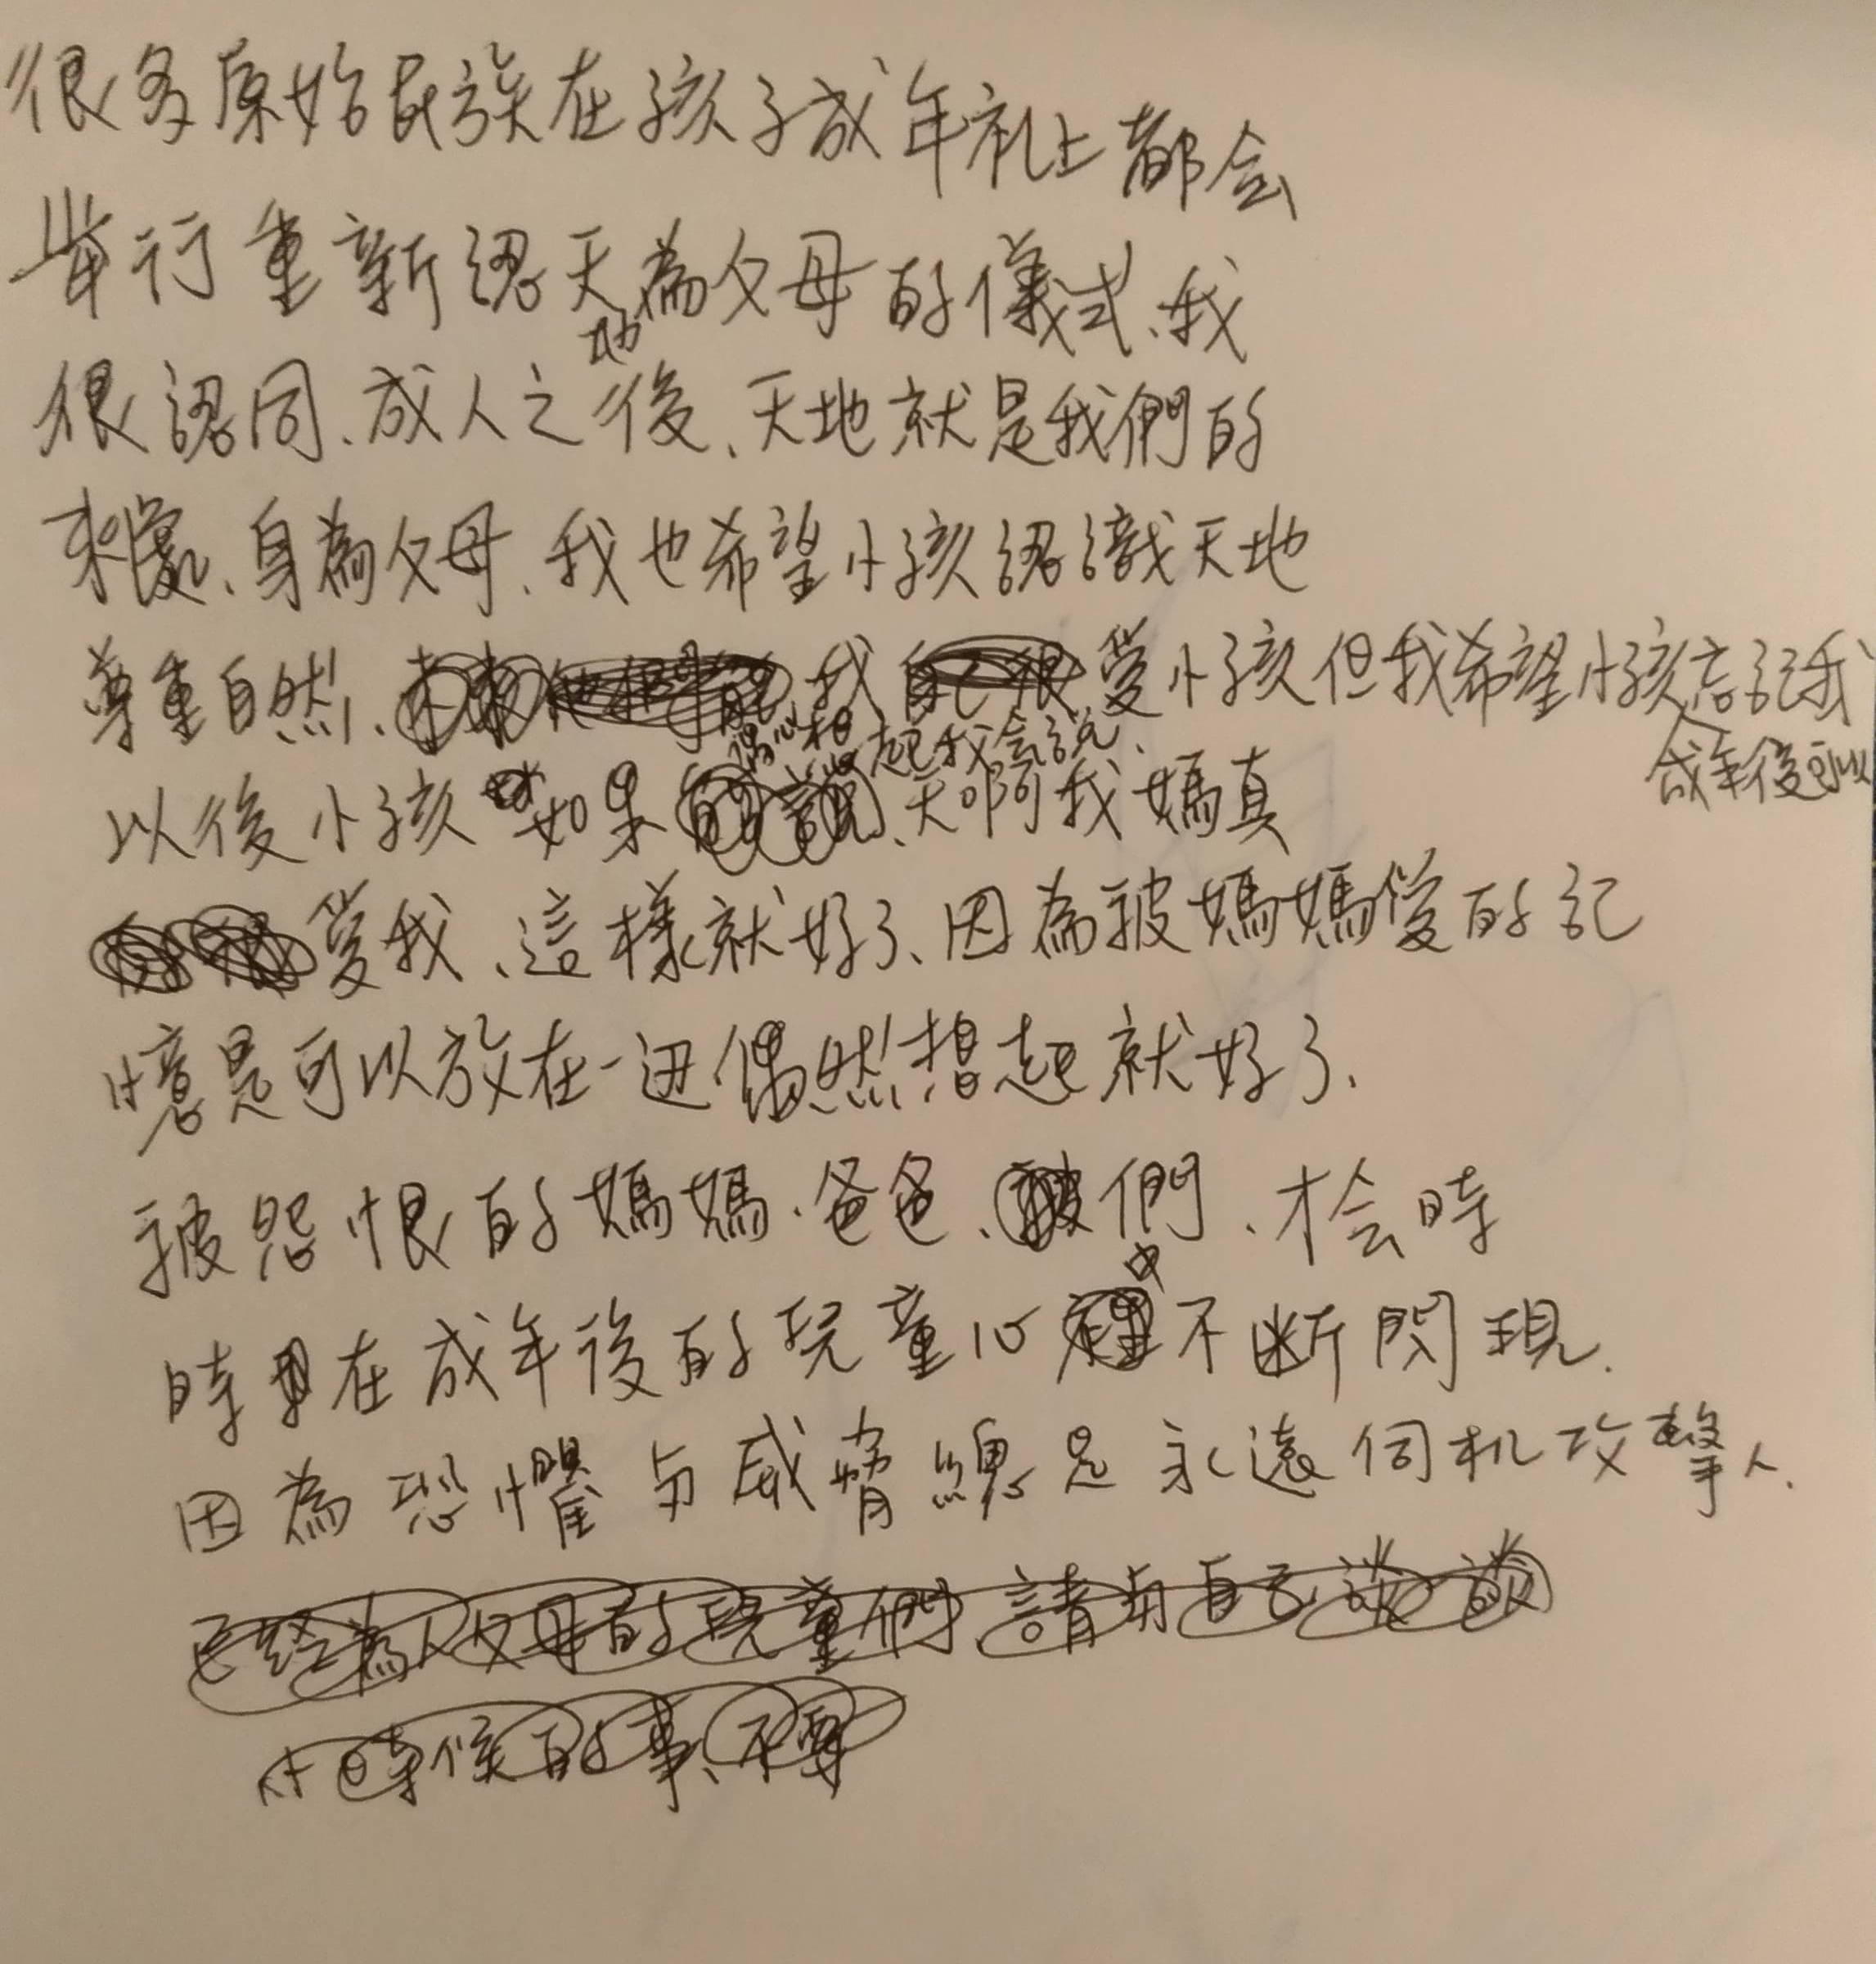 很多原始民族在孩子成年礼上都会
举行重新認天地為父母的儀式、我
很認同、成人之後、天地就是我們的
來處、身為父母、我也希望小孩認識天地
尊重自然、我愛小孩但我希望小孩成年後可以忘記我
以後小孩如果偶尔想起我会說、天啊我媽真
愛我、這樣就好了、因為被媽媽愛的記
憶是可以放在一边偶然想起就好了、
被怨恨的媽媽、爸爸、們、才会時
時在成年後的兒童心中不断閃現.
因為恐懼与威脅總是永遠伺机攻擊人.
已經為人父母的兒童們、請与自己談談
小時候的事、不要